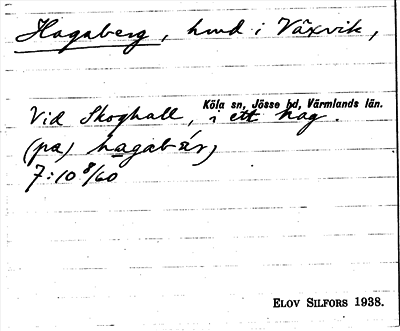 Hagaberg, hmd i Växvik,
Köla sn, Jösse hd, Värmlands län.
Vid Skoghall, i ett hag.
(pa) hagabär)
7:10 8/60
ELOV SILFORS 1938.